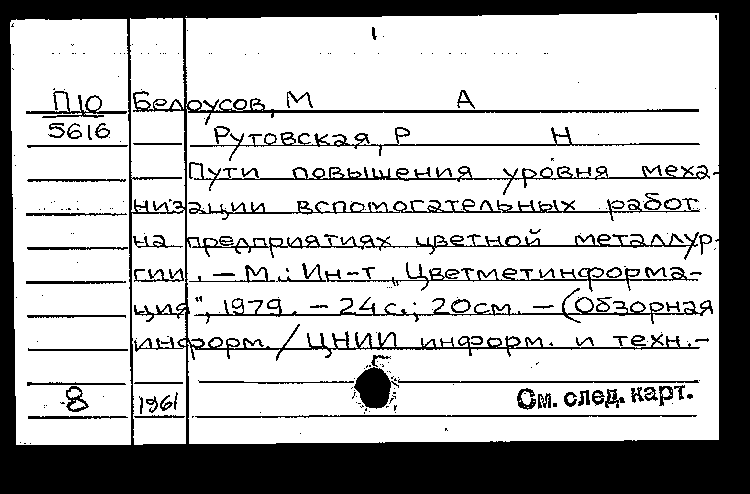 1
П10 Белоусов, М А
5616 Рутовская, Р Н
Пути повышения уровня меха-
низации вспомогательных работ
на предприятиях цветной металлур-
гии. – М.: Ин-т „Цветметинформа-
ция", 1979. – 24 с.; 20см. – (Обзорная
информ. / ЦНИИ информ. и техн.-
8 1961 См. след. карт.